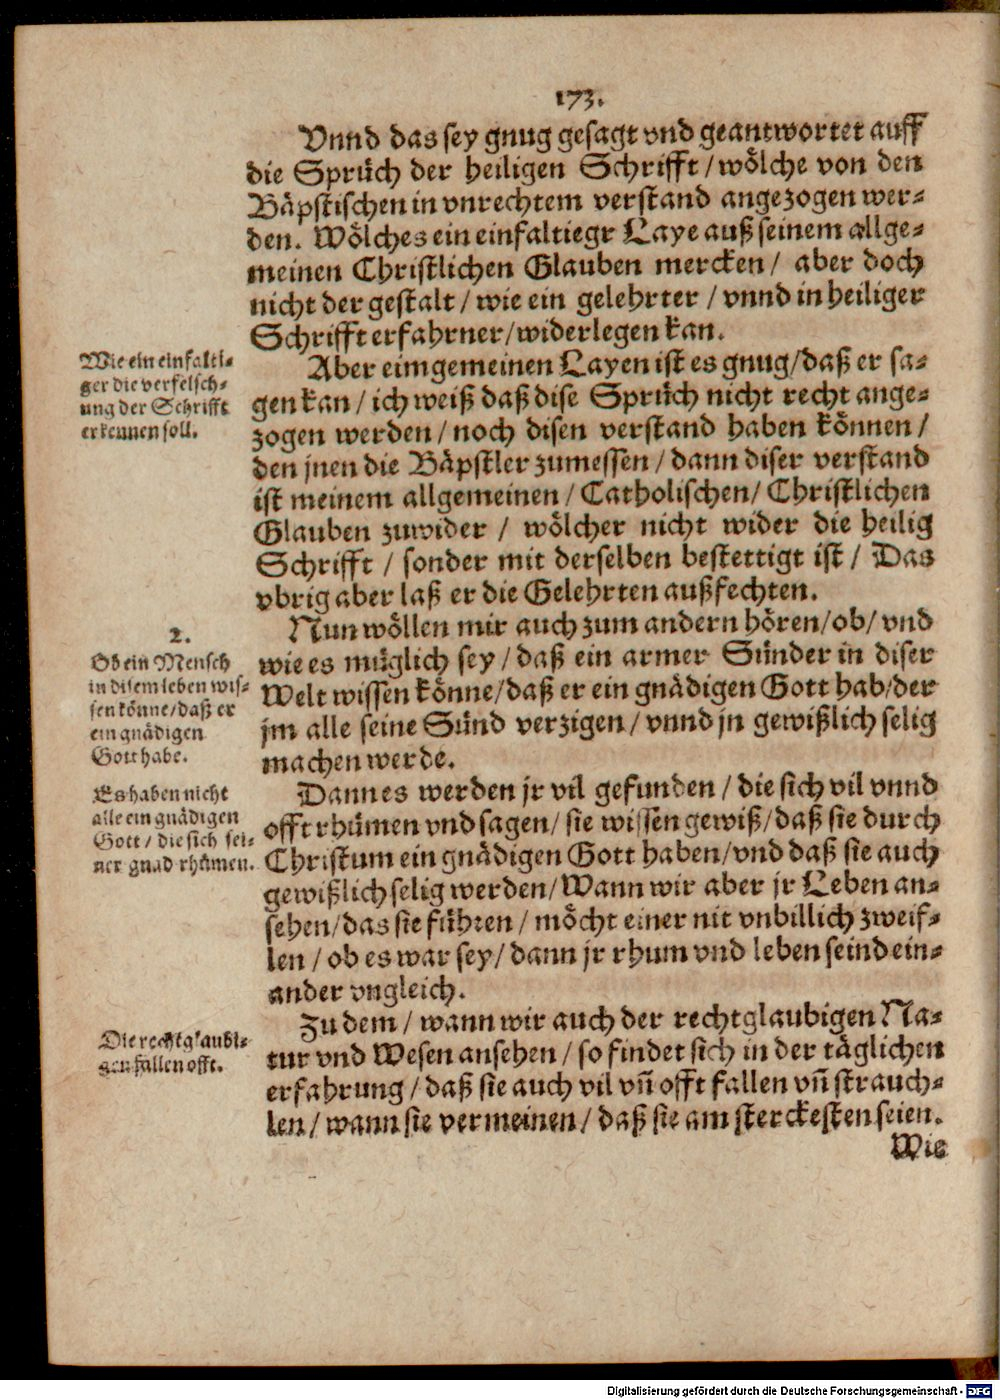 173.
Vnnd das sey gnug gesagt vnd geantwortet auff
die Sprüch der heiligen Schrifft / wölche von den
Bäpstischen in vnrechtem verstand angezogen wer-
den. Wölches ein einfaltiegr Laye auß seinem allge-
meinen Christlichen Glauben mercken / aber doch
nicht der gestalt / wie ein gelehrter / vnnd in heiliger
Schrifft erfahrner / widerlegen kan.
Wie ein einfalti-
ger die verfelsch-
ung der Schrifft
erkennen soll.
Aber eim gemeinen Layen ist es gnug / daß er sa-
gen kan / ich weiß daß dise Sprüch nicht recht ange-
zogen werden / noch disen verstand haben können /
den jnen die Bäpstler zumessen / dann diser verstand
ist meinem allgemeinen / Catholischen / Christlichen
Glauben zuwider / wölcher nicht wider die heilig
Schrifft / sonder mit derselben bestettigt ist / Das
vbrig aber laß er die Gelehrten außfechten.
2.
Ob ein Mensch
in disem leben wis-
sen könne / daß er
ein gnädigen
Gott habe.
Nun wöllen mir auch zum andern hören / ob / vnd
wie es müglich sey / daß ein armer Sünder in diser
Welt wissen könne / daß er ein gnädigen Gott hab / der
jm alle seine Sünd verzigen / vnnd jn gewißlich selig
machen werde.
Es haben nicht
alle ein gnädigen
Gott / die sich sei-
ner gnad rhümen.
Dann es werden jr vil gefunden / die sich vil vnnd
offt rhümen vnd sagen / sie wissen gewiß / daß sie durch
Christum ein gnädigen Gott haben / vnd daß sie auch
gewißlich selig werden / Wann wir aber jr Leben an-
sehen / das sie führen / möcht einer nit vnbillich zweif-
len / ob es war sey / dann jr rhum vnd leben seind ein-
ander vngleich.
Die rechtglaubi-
gen fallen offt.
Zu dem / wann wir auch der rechtglaubigen Na-
tur vnd Wesen ansehen / so findet sich in der täglichen
erfahrung / daß sie auch vil vñ offt fallen vñ strauch-
len / wann sie vermeinen / daß sie am sterckesten seien.
Wie
Digitalisierung gefördert durch die Deutsche Forschungsgemeinschaft - DFG